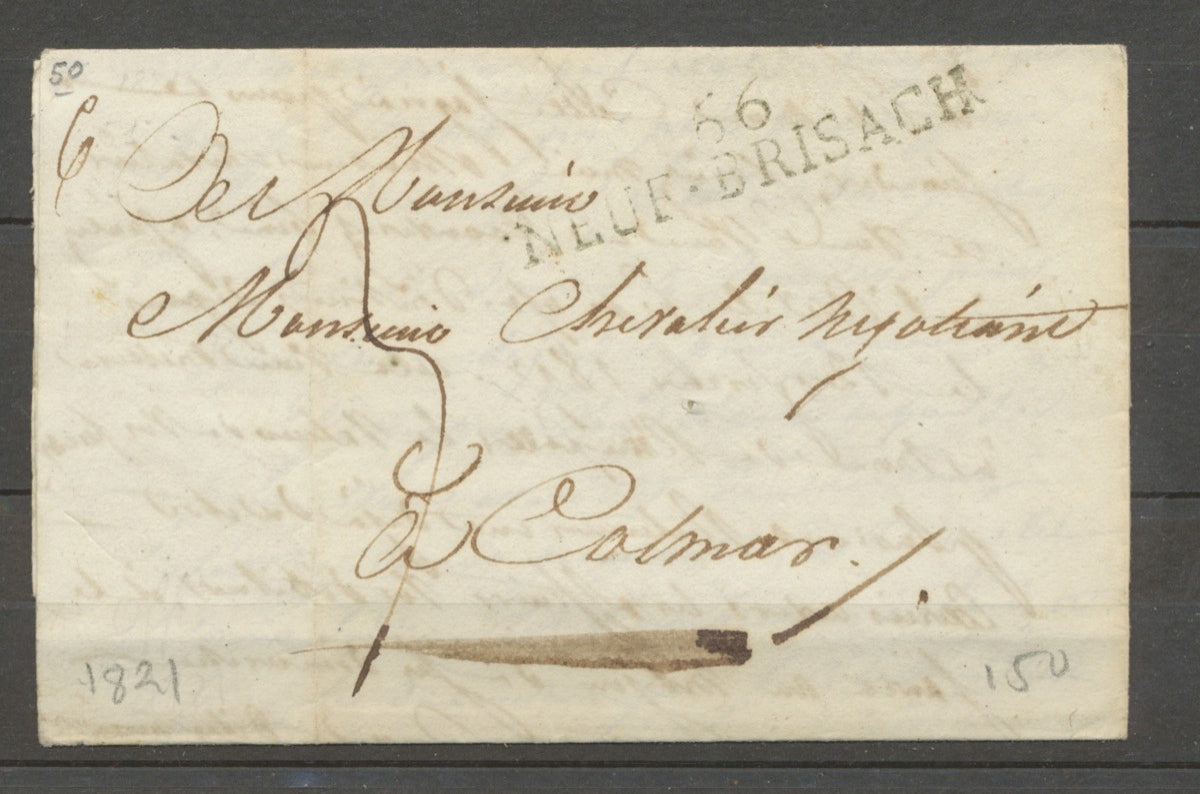 50
6
56
NEUF-BRISACH
De Monsieur
Monsieur Chevalier Negotiant
à Colmar.
1821
150